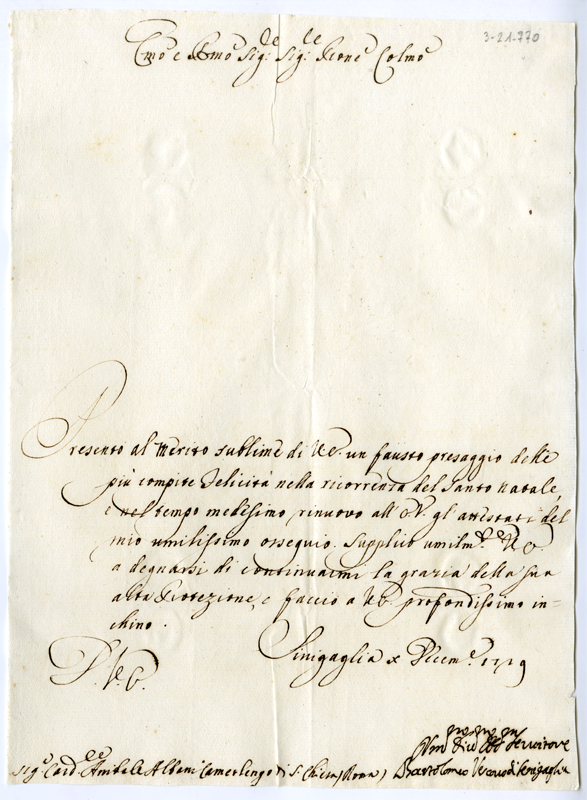 3-21-770
Emo e Rmo Sigre Sigre Prone Colmo
Presento al merito sublime di V.E. un fausto presaggio delle
più compite felicità nella ricorrenza del Santo Natale,
e nel tempo medesimo rinuovo all' E.V. gl'attestati del
mio umilissimo ossequio. Supplico umilmte V.E.
a degnarsi di continuarmi la grazia della sua
alta Protezione, e faccio a V.E. profondissimo in=
chino.
Sinigaglia x Dicembre 1719
D. V. E.
Servitore
Sigr Card. Annibale Albani Camerlengo di S. Chiesa (Roma)
Bartolomeo Vescovo di Senigaglia